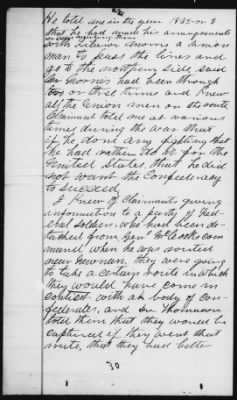 He told me in the year 1862 or 3
that he had made his arrangements
with Letcher Morris a Union
man to pass the lines and
go to the northern side, said
Morris had been through
two or three times and knew
all the Union men on the route
Claimant told me at various
times during the war that
if he done any fighting that
he had rather do it for the
United States, that he did
not want the Confederacy
to succeed,
I knew of Claimants giving
information to a party of Fed-
eral soldiers who had been de-
tached from Genl McCooks com-
mand when he was routed
near Newnan, they were going
to take a certain route in which
they would have come in
contact with an body of con-
federates, and
told them that they would be
captured if they went that
route, that they had better
30